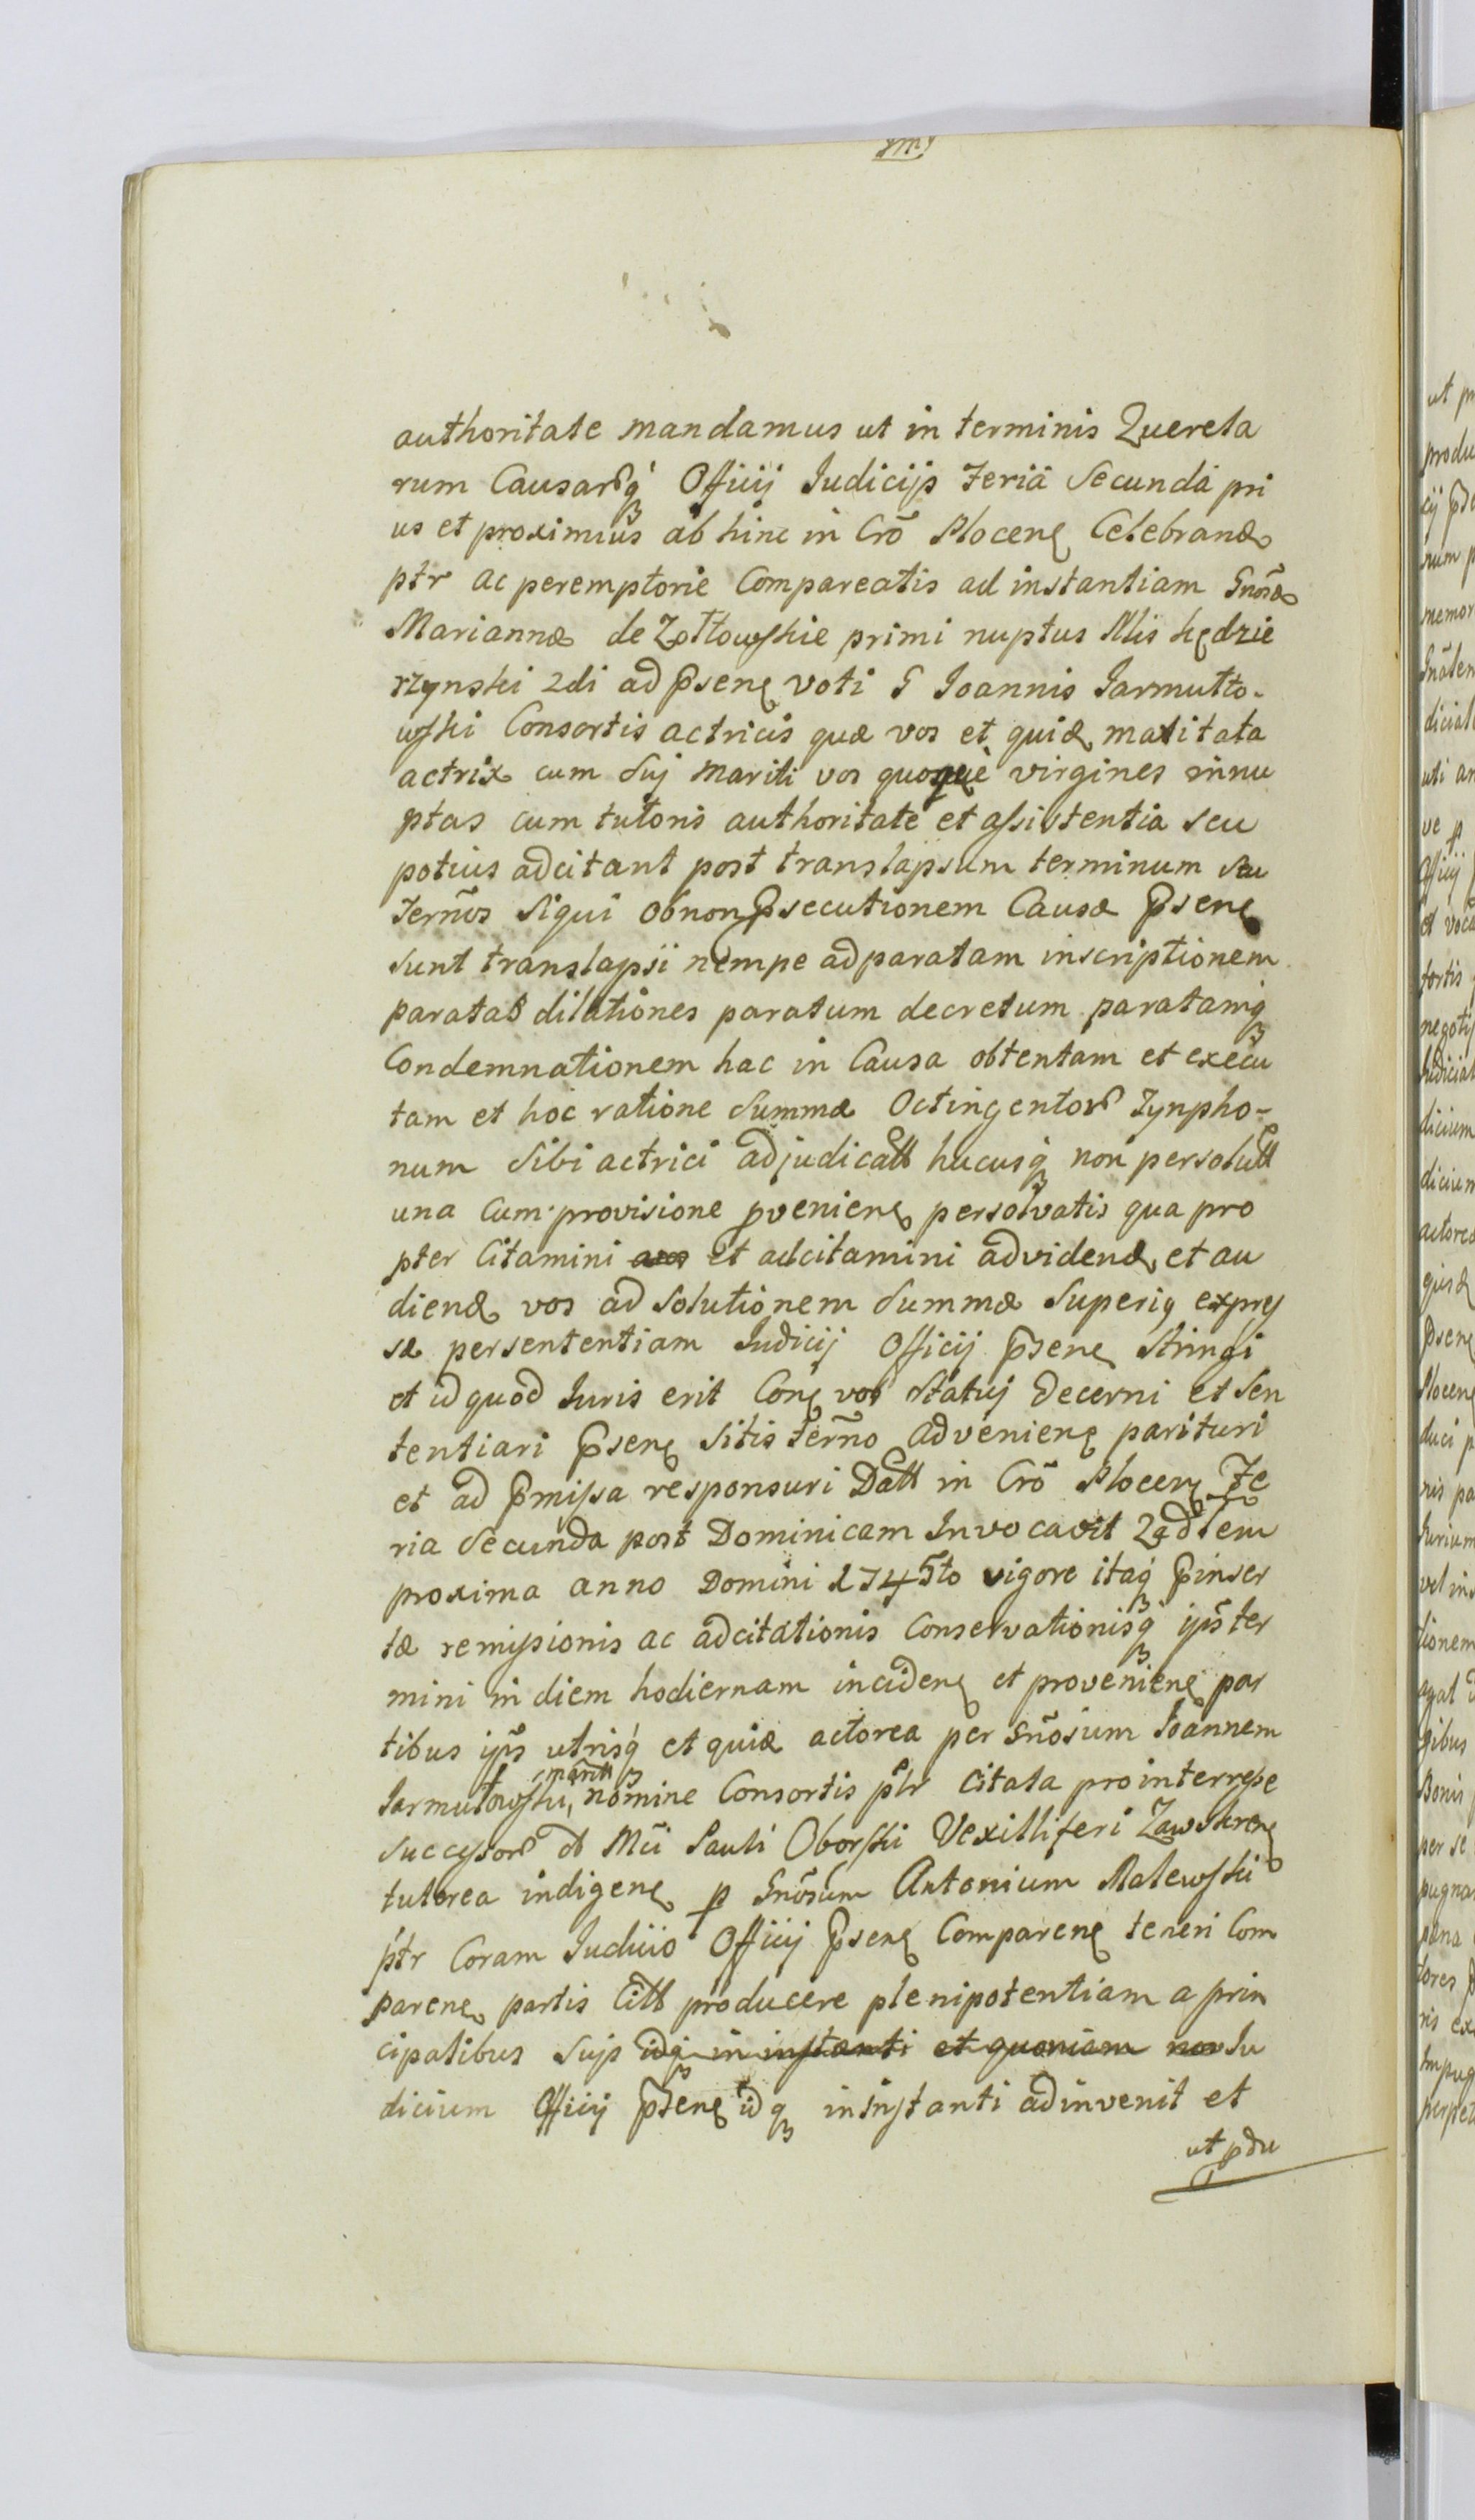 authoritate mandamus ut in terminis Querela
rum Causarq́ Officij Iudicijs Feriâ Secundâ pri
us et proximius ab hinc in Crõ Plocen Celebrand
ptr ac peremptorie Compareatis ad instantiam Gnosæ
Mariannæ de Zołtowskie primi nuptus Mis kędzie
rzynski 2di ad Psen voti G Ioannis Jarmutto-
wski Consortis actricis quæ vos et quid maritata
actrix cum suj mariti vos quoquè virgines innu
ptas cum tutoris authoritate et assistentia seu
potius adcitant post translapsum terminum seu
Termõs siqui obnon Psecutionem Causæ Psen
sunt translapsi nempe adparatam inscriptionem
paratas dilationes paratum decretum paratamq
Condemnationem hac in Causa obtentam et execu
tam et hoc ratione summæ Octingentor Tynpho-
num sibi actrici adjudicatt hucusq́ non persolutt
una cum provisione pvenien persolvatis qua pro
pter Citamini et adcitamini advidend et au
diend vos ad solutionem summæ superiq expres
sæ persententiam Iudicij Officij Psen stringi
et id quod Iuris erit Con vos statuj decerni et sen
tentiari Psen sitis termõ advenien parituri
et ad Pmissa responsuri Datt in Crõ Plocen Fe
ria secunda post Dominicam Invocavit Qadlem
proxima anno Domini 1745to vigore itaq́ Pinser
tæ remissionis ac adcitationis Conservationisq́ ipĩs ter
mini in diem hodiernam inciden et provenien par
tibus ipĩs utrisq́ et quid actorea per Gnõsum Ioannem
maritt
Jarmutowski, nomine Consortis ptr Citata prointerresse
successor ol Mci Pauli Oborski Vexilliferi Zawskren
tutorea indigen p Gnõsum Antonium Malewski
ptr Coram Iudiciio Officij Psen Comparen teneri Com
paren partis Citt producere plenipotentiam a prin
cipalibus sujs idq in instanti et quoniam non Iu
dicium Officij Psen idq in instanti adinvenit et
ut pdu